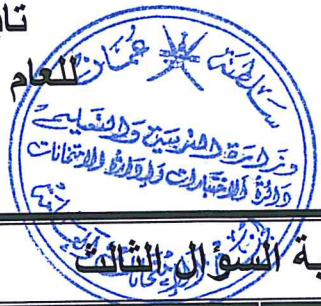 تا
للعام
سلطنة عُمان
وزارة التربية والتعليم
دائرة الاختبارات وإدارة الامتحانات
ية السؤال الثالث